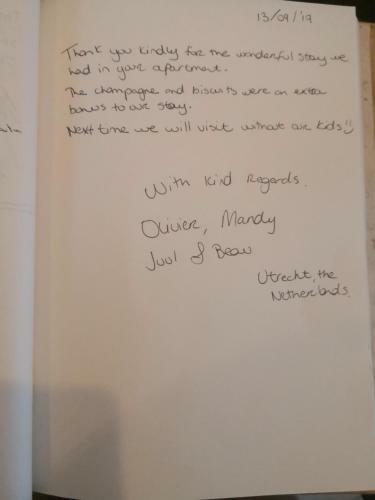 13/09/'19
Thank you kindly for the wonderful stay we
had in your apartment.
The champagne and biscuits were an extra
bonus to our stay.
Next time we will visit without our kids!
With kind Regards.
Olivier, Mandy
Juul & Beau
Utrecht, the
Netherlands.